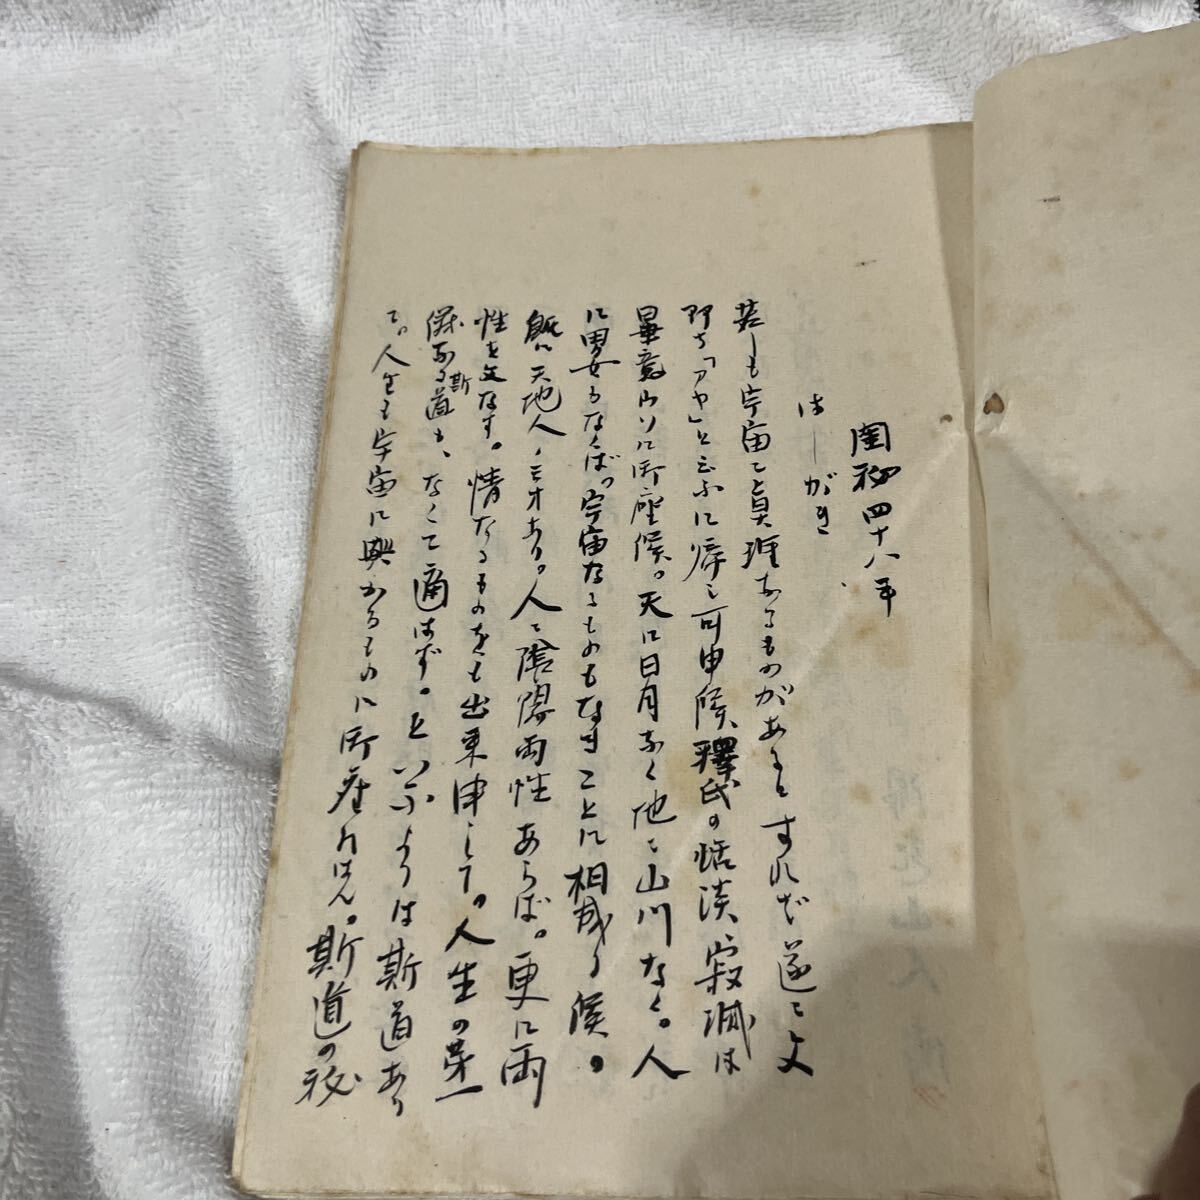 閨秘四十八手
はしがき
若しも宇宙に真理なるものがあるとすれば遂に文
野も「アヤ」と云ふに庶し可申候釋氏の恬淡、寂滅は
畢竟ウソに御座候。天に日月なく地に山川なく。人
に男女るなくば。宇宙なるものもなきことに相成る候。
既に天地人ノ三才あり。人に陰陽両性あらば。更に両
性を文なす。情なるものをも出来申して。人生の第一
儀なる斯道も、なくて適はず。といふよりは斯道あり
て。人生も宇宙に興かるものに御座れはん。斯道の秘